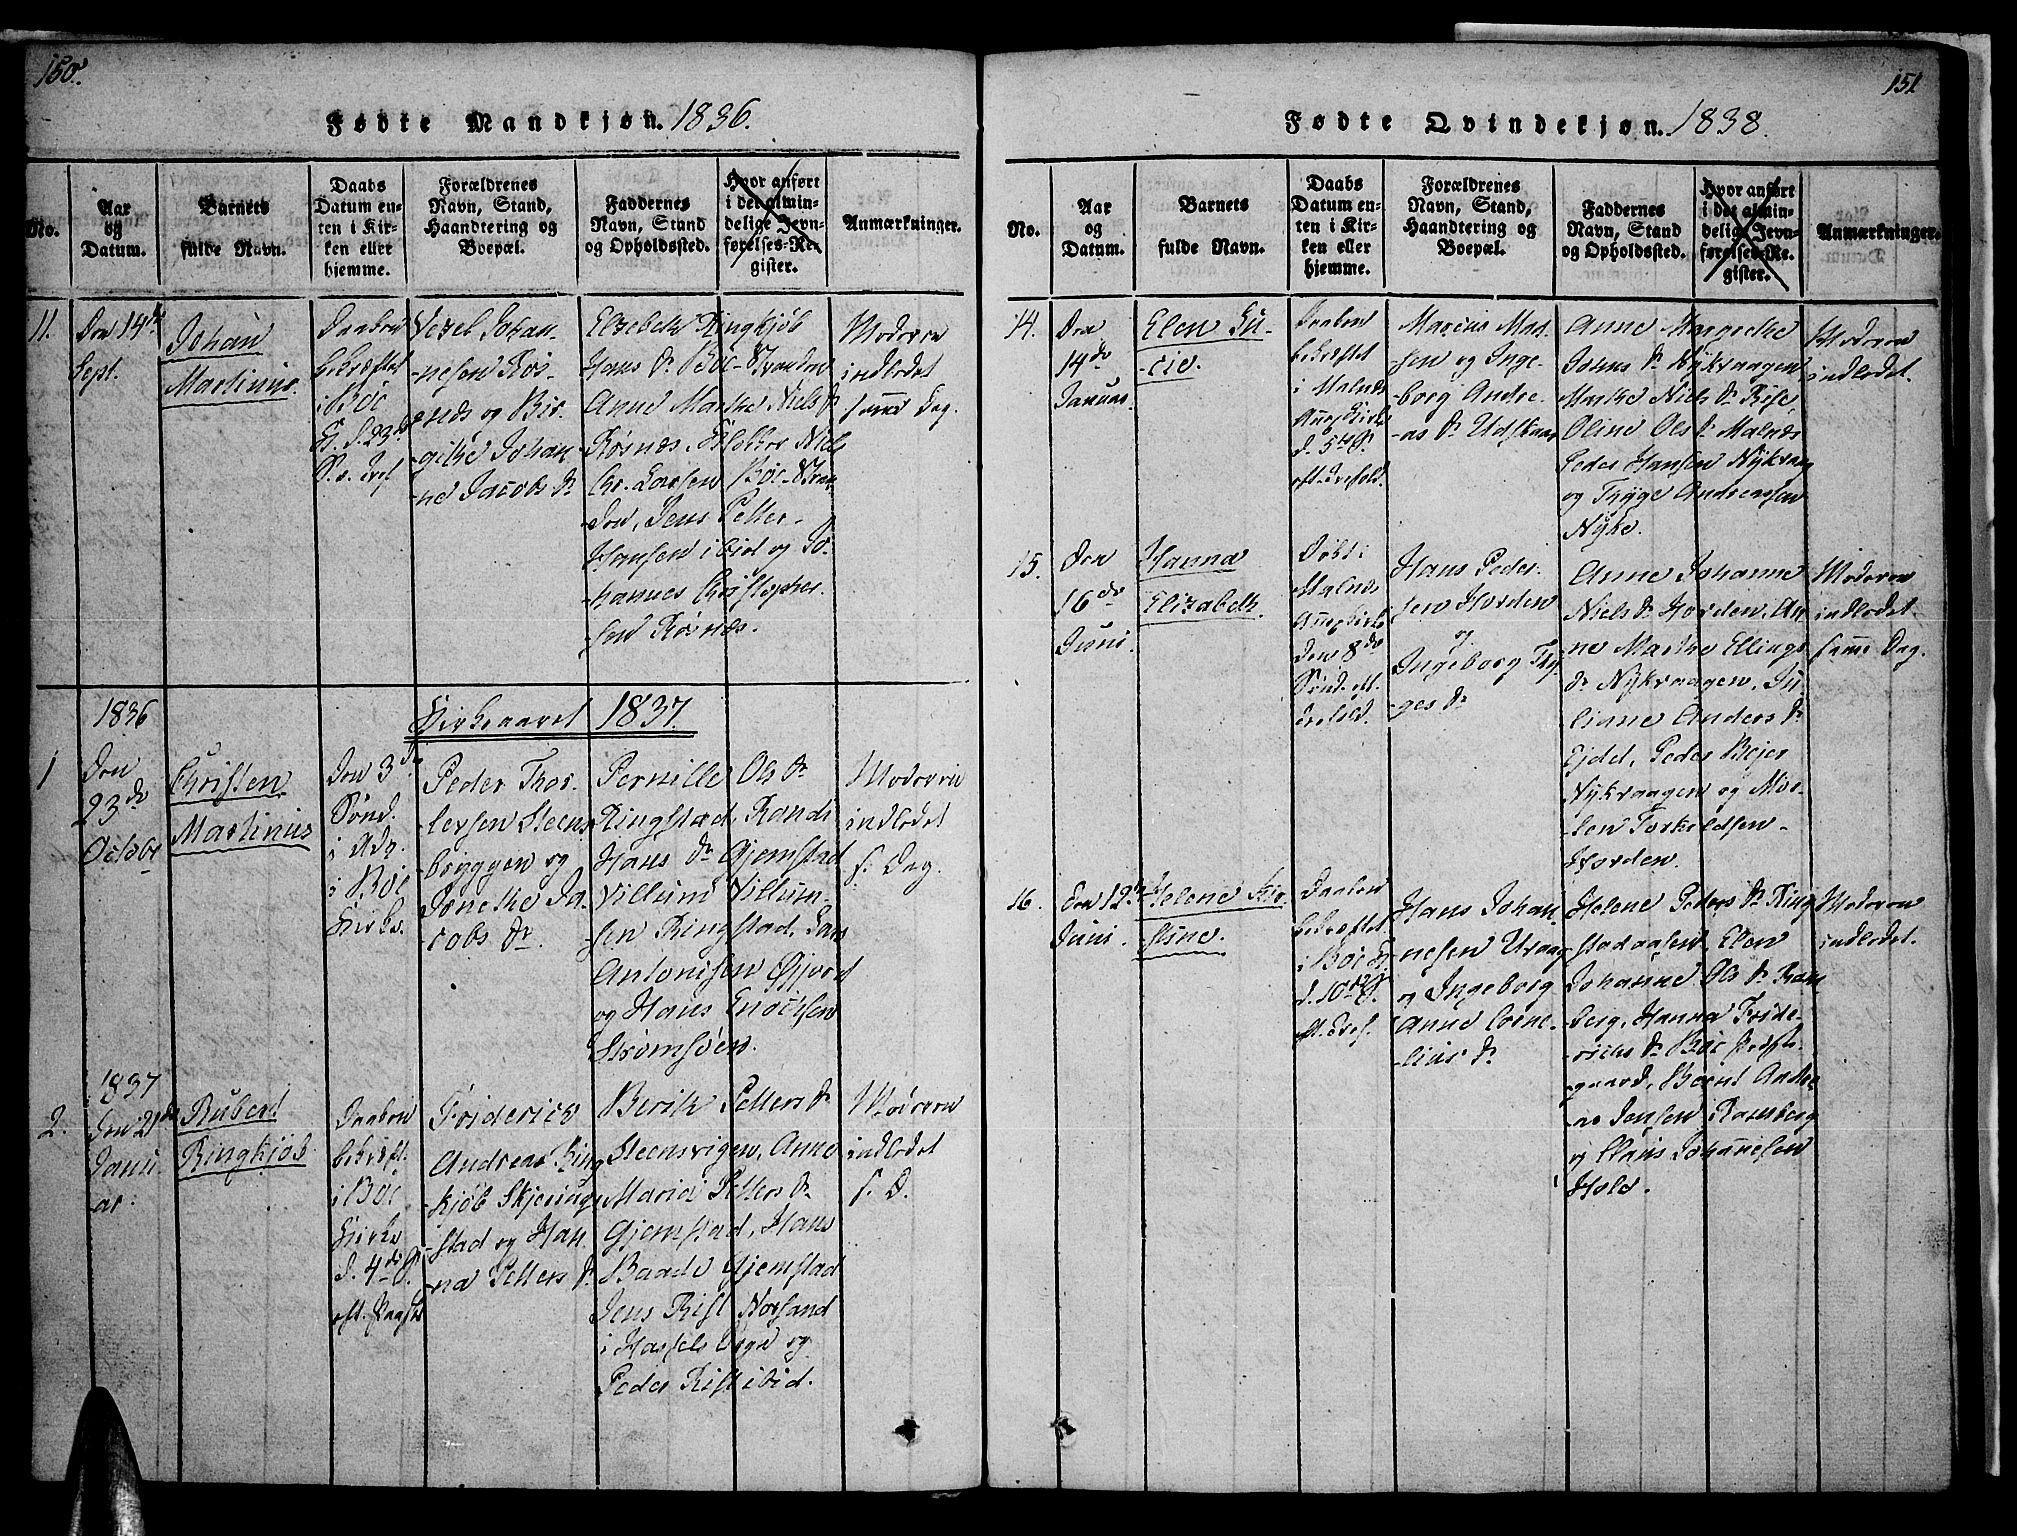 150.
Fødte Mandkjøn. 1836.
No.
Aar
og
Datum.
Barnets
fulde Navn.
Daabs
Datum en-
ten i Kir-
ken eller
hjemme.
Forældrenes
Navn, Stand,
Haandtering og
Boepæl.
Faddernes
Navn, Stand
og Opholdssted.
Hvor anført
i det almin-
delige Jevn-
førelses-Re-
gister.
Anmærkninger.
11.
Den 14de
Sept.
Johan
Martinus.
Daaben
bekræftet
i Böe
K. d. 23de
Vezel Johan-
nesen Rös-
næs og Bir-
githe Johan-
ne Jacobs Dr
Elsebeth Ringkjöb
Hans Dr Böe-Stranden
Anne Marthe Niels Dr
Rösnæs,
Chr. Larsen Böe-Stran-
den, Jens Petter
Hansen ibid og Jo-
hannes Christopher-
sen Rösnæs.
Moderen
indledet
samme Dag.
Kirkeaaret 1837.
1
1836
Den
23de
Octobr
Christen
Martinus
Den 3de
Sönd.
i Adv.
i Böe
Kirke.
Peder Thor-
lersen Steens-
bryggen og
Jonethe Ja-
cobs Dr.
Pernille Ols Dr
Ringstad, Randi
Hans Dr Gjemstad
Villum Villum-
sen Ringstad, Lars
Antonisen Gjerd
og Hans Enochsen
Strömsöen.
Moderen
indledet
s. Dag.
2.
1837
Den 21de
Janu-
ar.
Rubert
Ringkjöb
Daaben
bekræft.
i Böe
Kirke
d. 4de S.
eft. Paaske
Friderich
Andreas Ring-
kjöb Skjering-
stad og Han-
na Petters Dr
Berith Petters Dr
Steensvigen, Anne
Maria Petters Dr
Gjemstad, Hans
Baade Gjemstad
Jens Rist Norsand
i Hassels Sogn og
Peder Rist ibid.
Moderen
indledet
s. D.
151
Fødte Qvindekjøn. 1838.
No.
Aar
og
Datum.
Barnets
fulde Navn.
Daabs
Datum en-
ten i Kir-
ken eller
hjemme.
Forældrenes
Navn, Stand,
Haandtering og
Boepæl.
Faddernes
Navn, Stand
og Opholdssted.
Hvor anført
i det almin-
delige Jevn-
førelses-Re-
gister.
Anmærkninger.
14.
Den
14de
Januar.
Elen Lu-
cie.
Daaben
bekræftet
i Malnes
Annexkirke
d. 5te S.
eft. Trefold.
Marcus Mad-
sen og Inge-
borg Andre-
as Dr Udskaar
Anne Margrethe
Johns Dr Nykvaagen
Marthe Niels Dr Rise,
Oline Ols Dr Malnes
Peder Hansen Nykvaag
og Thyge Andreassen
Nyke.
Moderen
indledet.
15.
Den
16de
Juni.
Hanna
Elizabeth.
Döbt i
Malnes
Annexkirke
den 8de
Sönd. eft.
Trefold.
Hans Peder-
sen Horden
og
Ingeborg Thy-
ges Dr
Anne Johanne
Niels Dr Horden, An-
ne Marthe Ellings
Dr Nykvaagen, Ju-
liane Anders Dr
Ejde, Peder Bejer
Nykvaagen og Mor-
ten Torkeldsen
Horden.
Moderen
indledet
samme Dag.
16.
Den 12te
Juni.
Helene Kir-
stine.
Daaben
bekræftet
i Böe K.
d. 10de S.
eft. Tref.
Hans Johan-
nesen Uvaag
og Ingeborg
Anne Corne-
lius Dr
Helene Peders Dr Ring-
stadaasen, Elen
Johanne Ols Dr Ram-
berg, Hanna Fride-
richs Dr Böe Præste-
gaard, Bernt Andre-
as Jensen Ramberg
og Claus Johannesen
Hold.
Moderen
indledet.